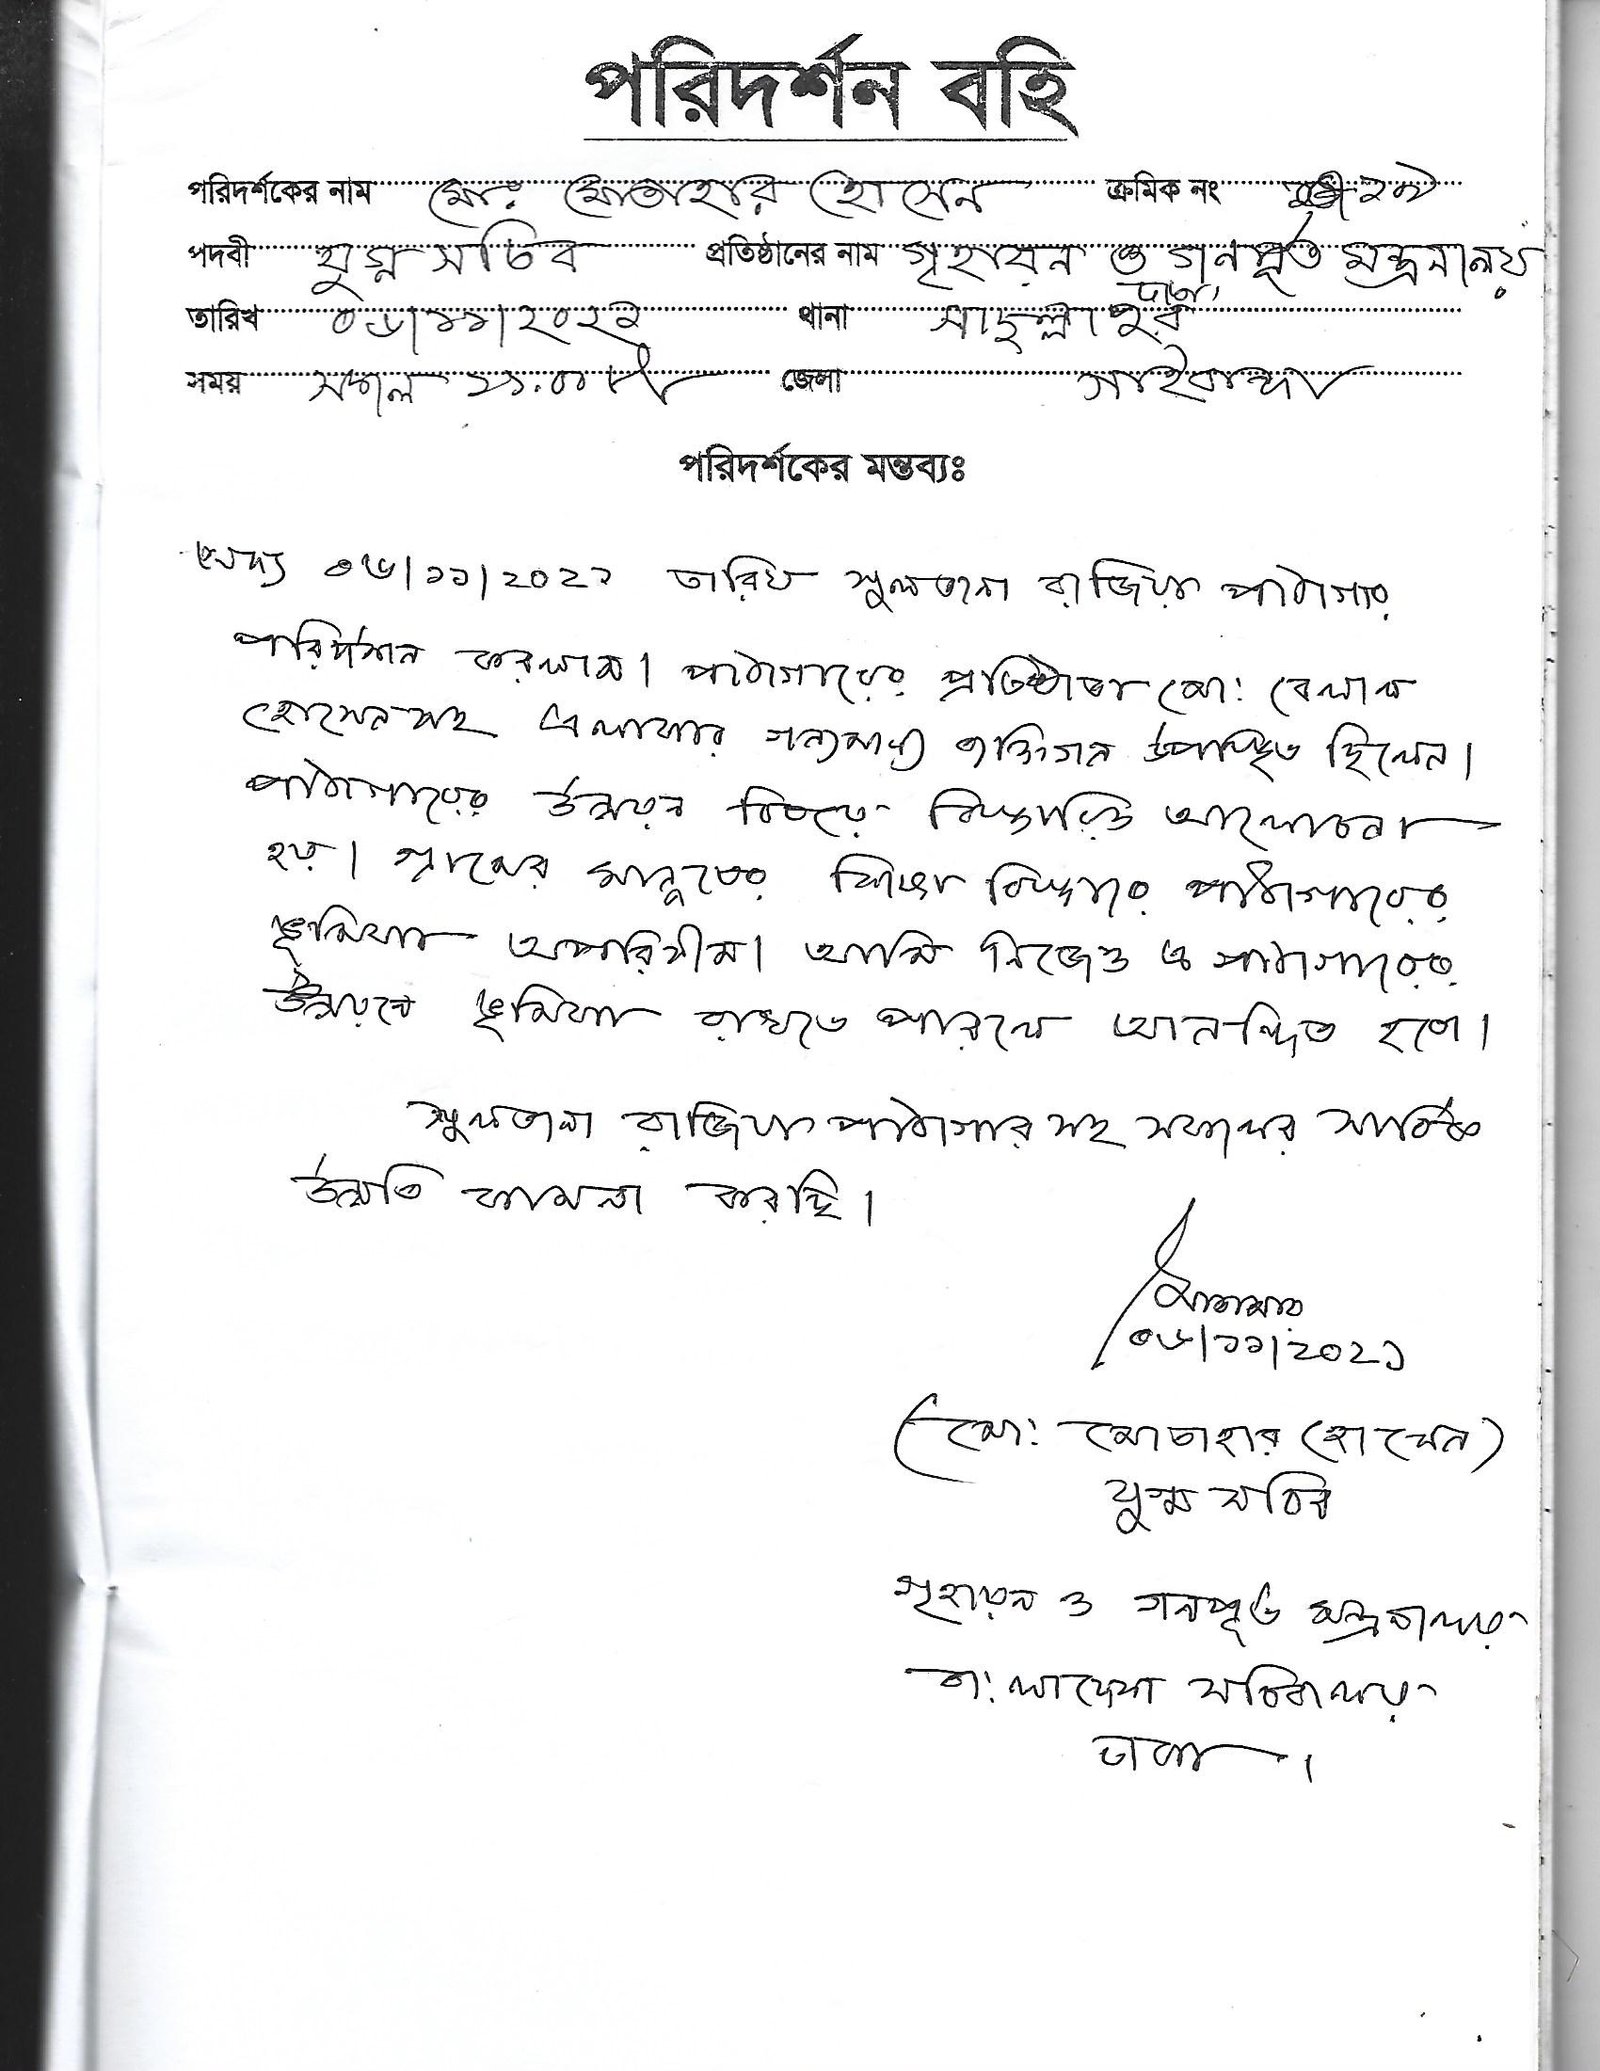 পরিদর্শন বহি
পরিদর্শকের নাম মোঃ মোতাহার হোসেন ক্রমিক নং ২০৭
পদবী যুগ্ন সচিব প্রতিষ্ঠানের নাম গৃহায়ন ও গনপূর্ত মন্ত্রনালয়
ঢাকা,
তারিখ ০৬/১১/২০২১ থানা সাদুল্লাপুর
সময় সকাল ১১.০০ জেলা গাইবান্ধা
পরিদর্শকের মন্তব্যঃ
অদ্য ০৬/১১/২০২১ তারিখ সুলতানা রাজিয়া পাঠাগার
পরিদর্শন করলাম। পাঠাগারের প্রতিষ্ঠাতা মো: বেলাল
হোসেনসহ এলাকার গন্যমান্য ব্যক্তিগন উপস্থিত ছিলেন।
পাঠাগারের উন্নয়ন বিষয়ে বিস্তারিত আলোচনা
হয়। গ্রামের মানুষের শিক্ষা বিস্তারে পাঠাগারের
ভূমিকা অপরিসীম। আমি নিজেও এ পাঠাগারের
উন্নয়নে ভূমিকা রাখতে পারলে আনন্দিত হবো।
সুলতানা রাজিয়া পাঠাগার সহ সকলের সার্বিক
উন্নতি কামনা করছি।
০৬/১১/২০২১
(মো: মোতাহার হোসেন)
যুগ্ম সচিব
গৃহায়ন ও গনপূর্ত মন্ত্রনালয়
বাংলাদেশ সচিবালয়
ঢাকা।